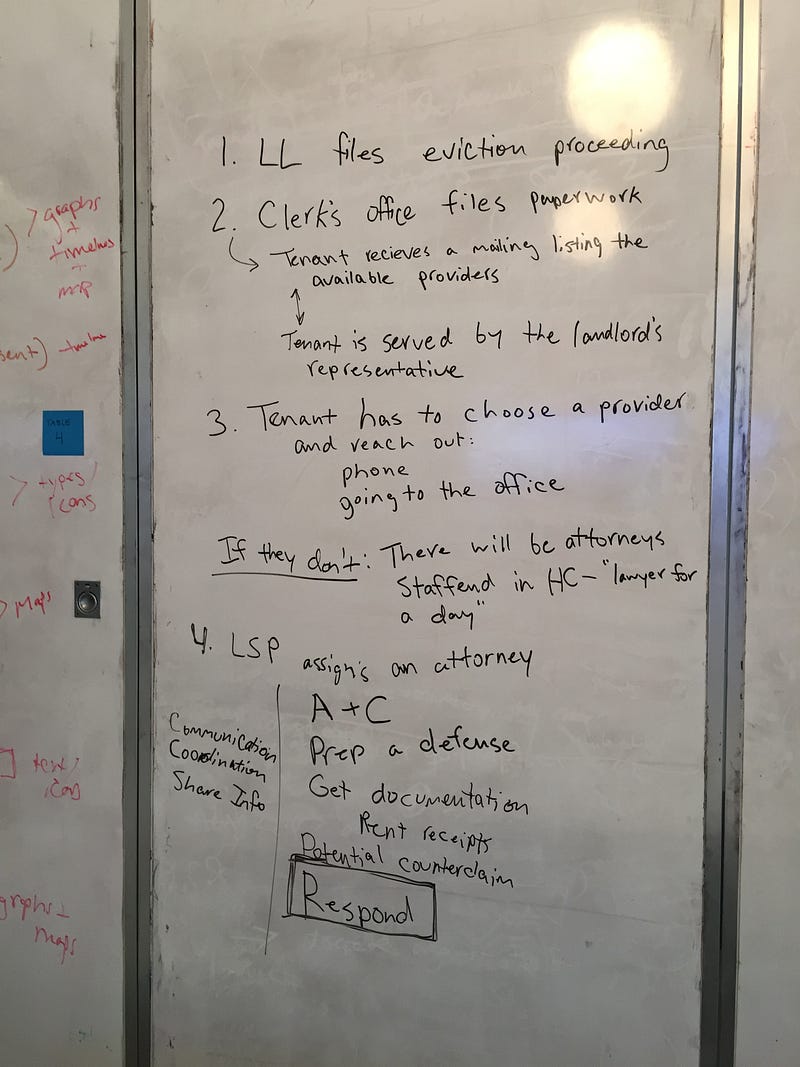 > graphs
+
timelines
+
map
sent) timeline
TABLE
4
> types/
icons
> Maps
text/
icons
graphs +
maps
1. LL files eviction proceeding
2. Clerk's office files paperwork
Tenant recieves a mailing listing the
available providers
Tenant is served by the landlord's
representative
3. Tenant has to choose a provider
and reach out:
phone
going to the office
If they don't: There will be attorneys
Staffend in HC - "lawyer for
a day"
4. LSP assign's an attorney
Communication
Coordination
Share Info
A + C
Prep a defense
Get documentation
Rent receipts
Potential counterclaim
Respond